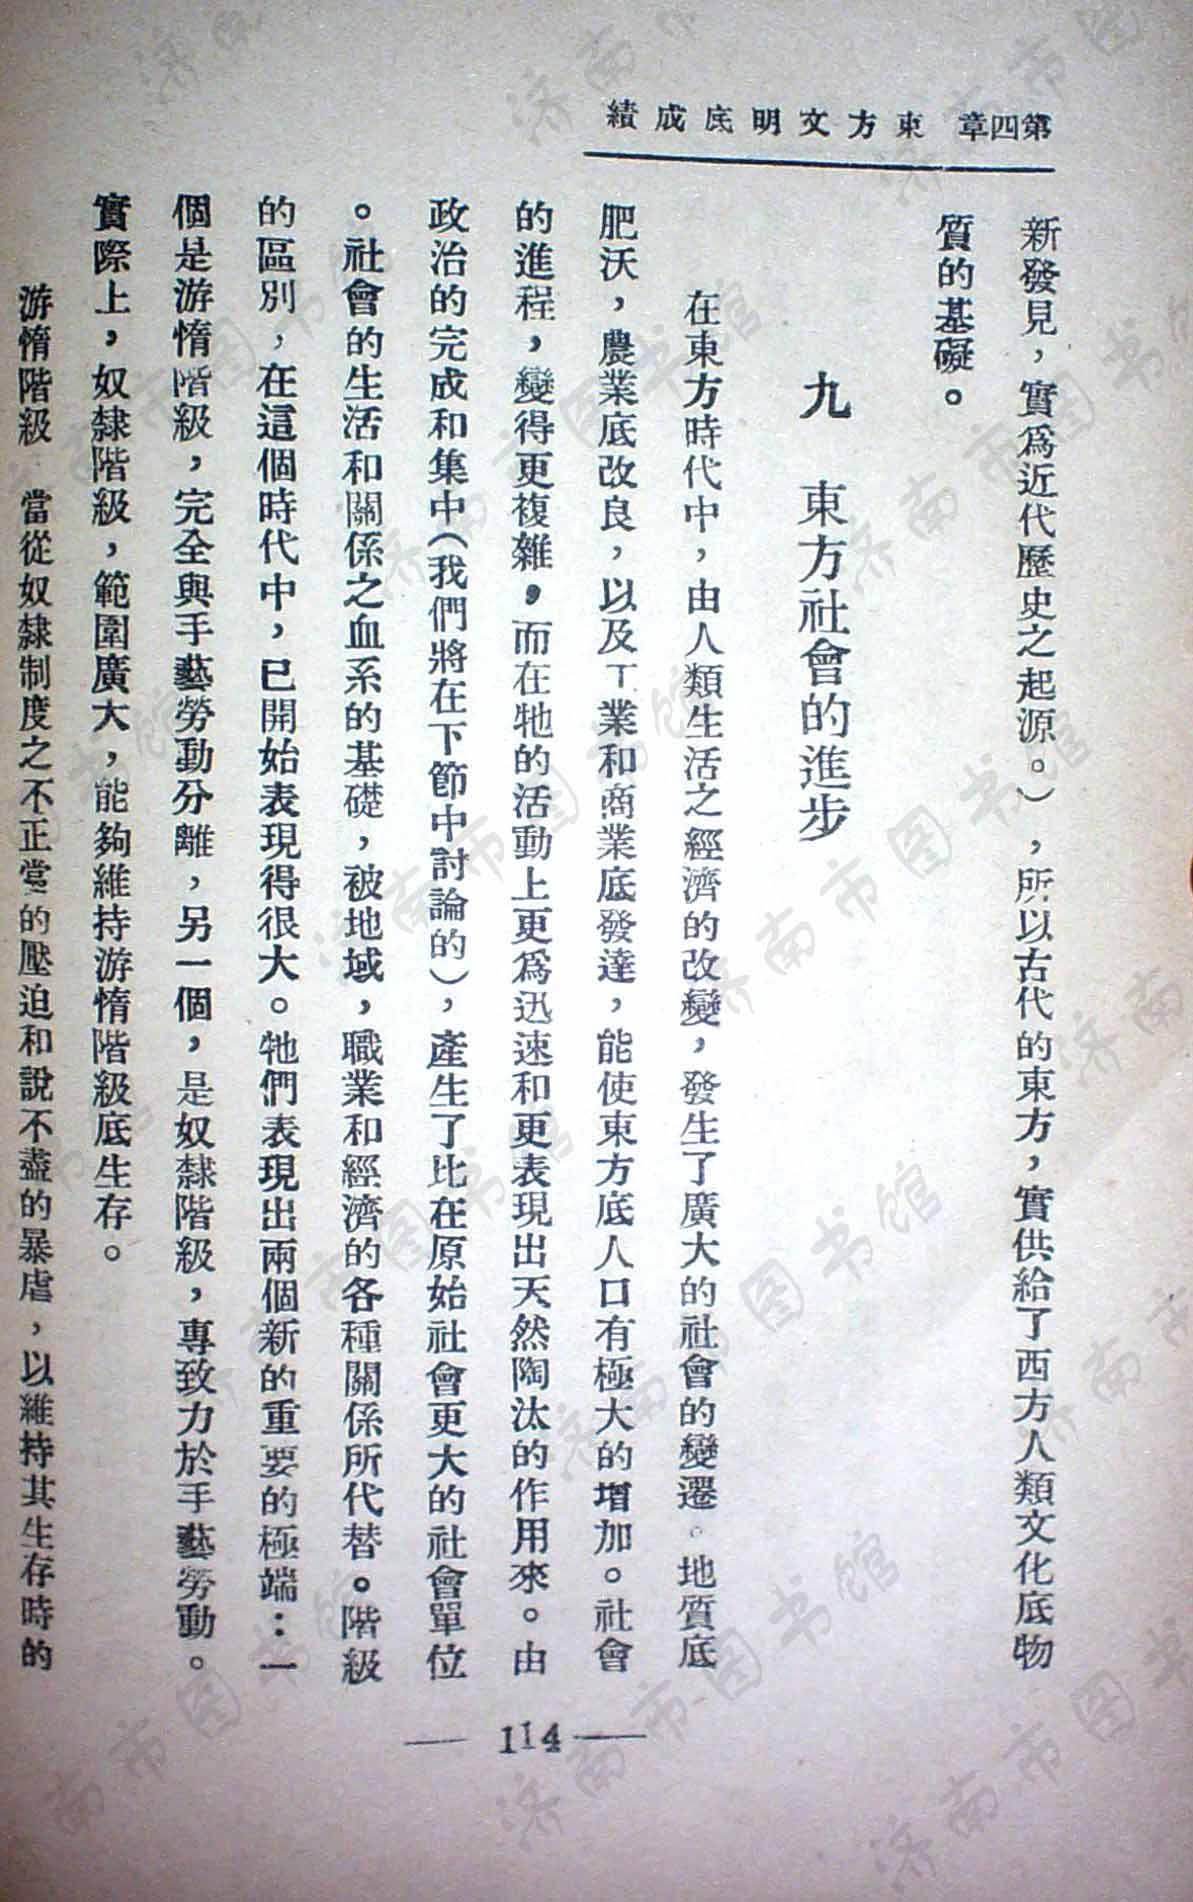 第四章 東方文明底成績
新發見，實爲近代歷史之起源。），所以古代的東方，實供給了西方人類文化底物
質的基礙。
九 東方社會的進步
在東方時代中，由人類生活之經濟的改變，發生了廣大的社會的變遷。地質底
肥沃，農業底改良，以及工業和商業底發達，能使東方底人口有極大的增加。社會
的進程，變得更複雜，而在牠的活動上更爲迅速和更表現出天然陶汰的作用來。由
政治的完成和集中（我們將在下節中討論的），產生了比在原始社會更大的社會單位
。社會的生活和關係之血系的基礎，被地域，職業和經濟的各種關係所代替。階級
的區別，在這個時代中，已開始表現得很大。牠們表現出兩個新的重要的極端：一
個是游惰階級，完全與手藝勞動分離，另一個，是奴隸階級，專致力於手藝勞動。
實際上，奴隸階級，範圍廣大，能夠維持游惰階級底生存。
游惰階級 當從奴隸制度之不正當的壓迫和說不盡的暴虐，以維持其生存時的
— 114 —
济南市图书馆